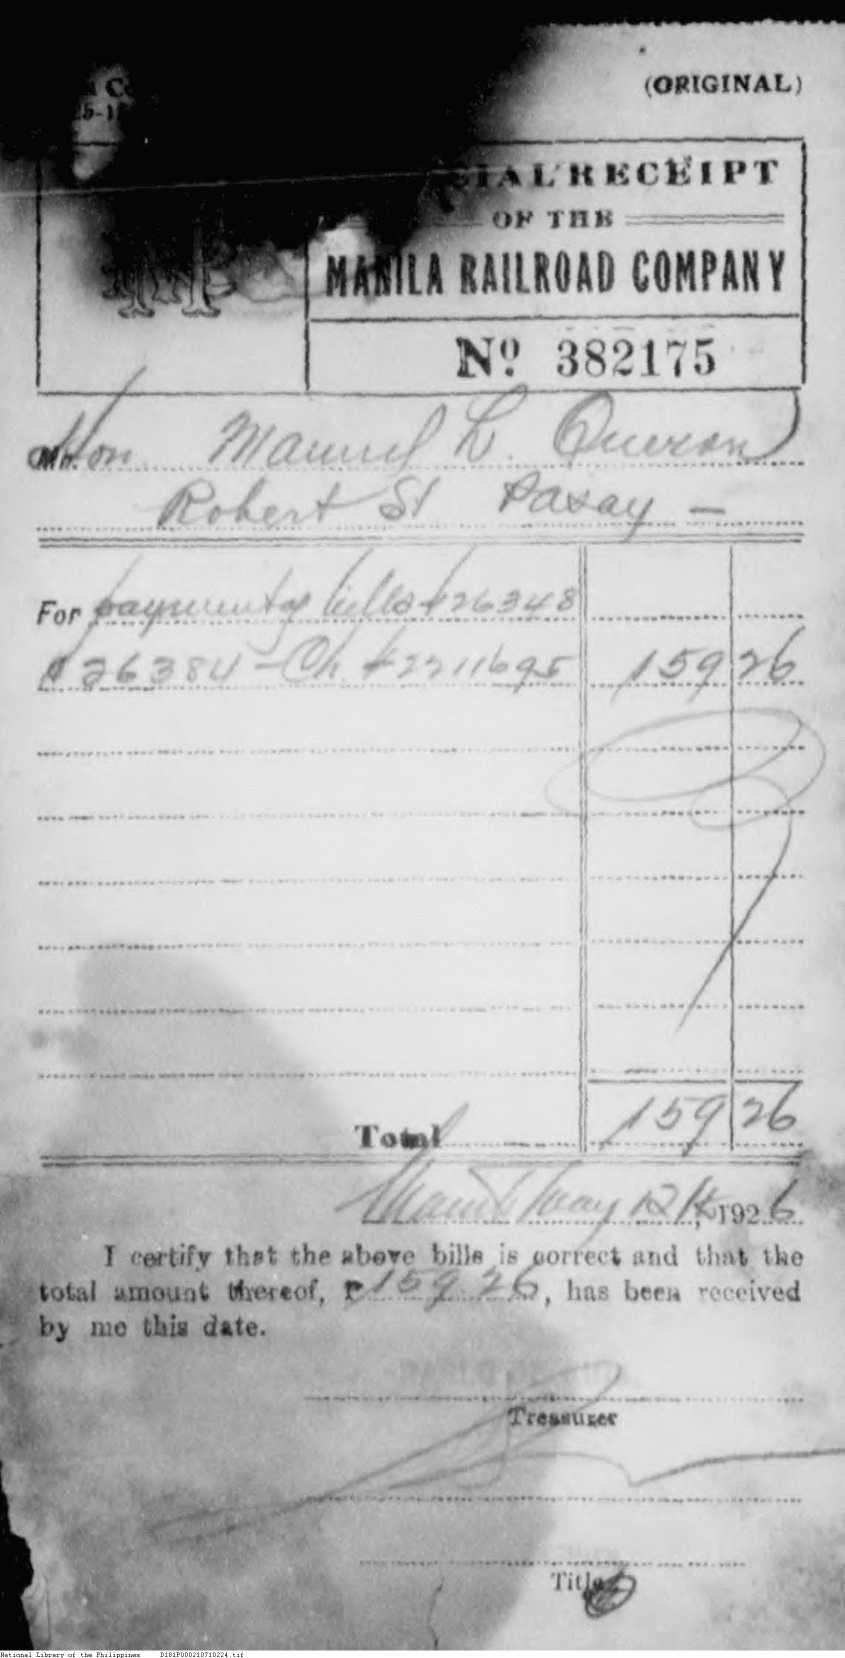 (ORIGINAL)
RECEIPT
OF THE
MANILA RAILROAD COMPANY
Nº 382175
Hon. Manuel L. Quezon
Robert St Pasay -
For payment of bills #26348
# 26384 - Ch. #2211695 159 26
Total 159 26
Manila May 12th, 1926
I certify that the above bills is correct and that the
total amount thereof, ₱ 159 26, has been received
by me this date.
Treasurer
Title
National Library of the Philippines D181P000210710224.tif